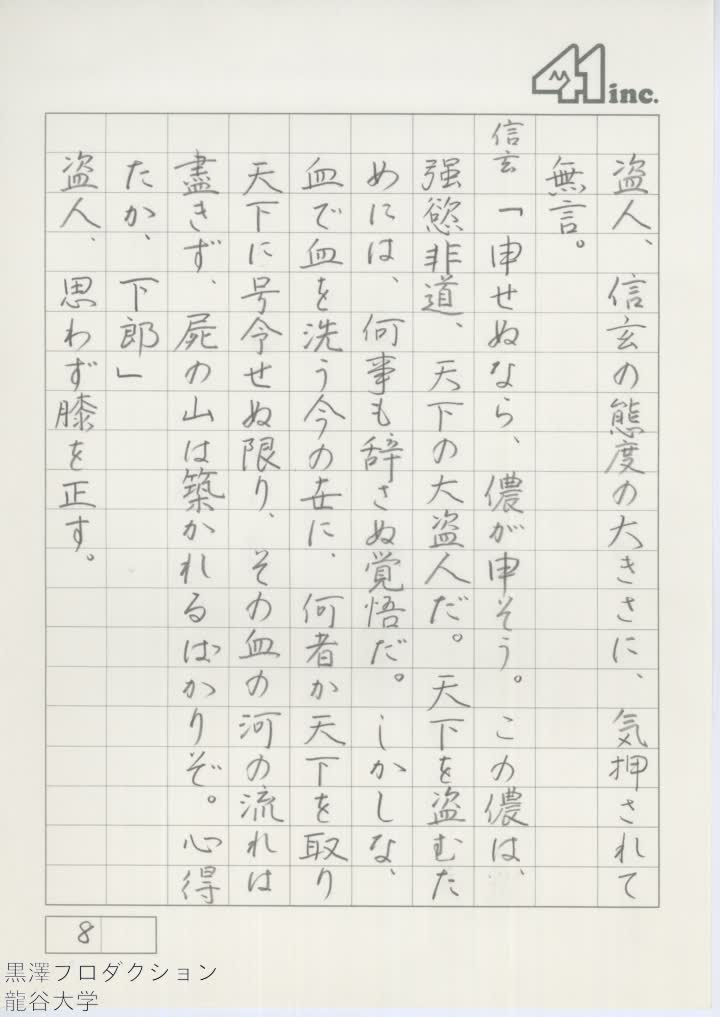 41 inc.
盗人、信玄の態度の大きさに、気押されて
無言。
信玄「申せぬなら、儂が申そう。この儂は、
強慾非道、天下の大盗人だ。天下を盗むた
めには、何事も辞さぬ覚悟だ。しかしな、
血で血を洗う今の世に、何者か天下を取り
天下に号令せぬ限り、その血の河の流れは
盡きず、屍の山は築かれるばかりぞ。心得
たか、下郎」
盗人、思わず膝を正す。
8
黒澤フロダクション
龍谷大学